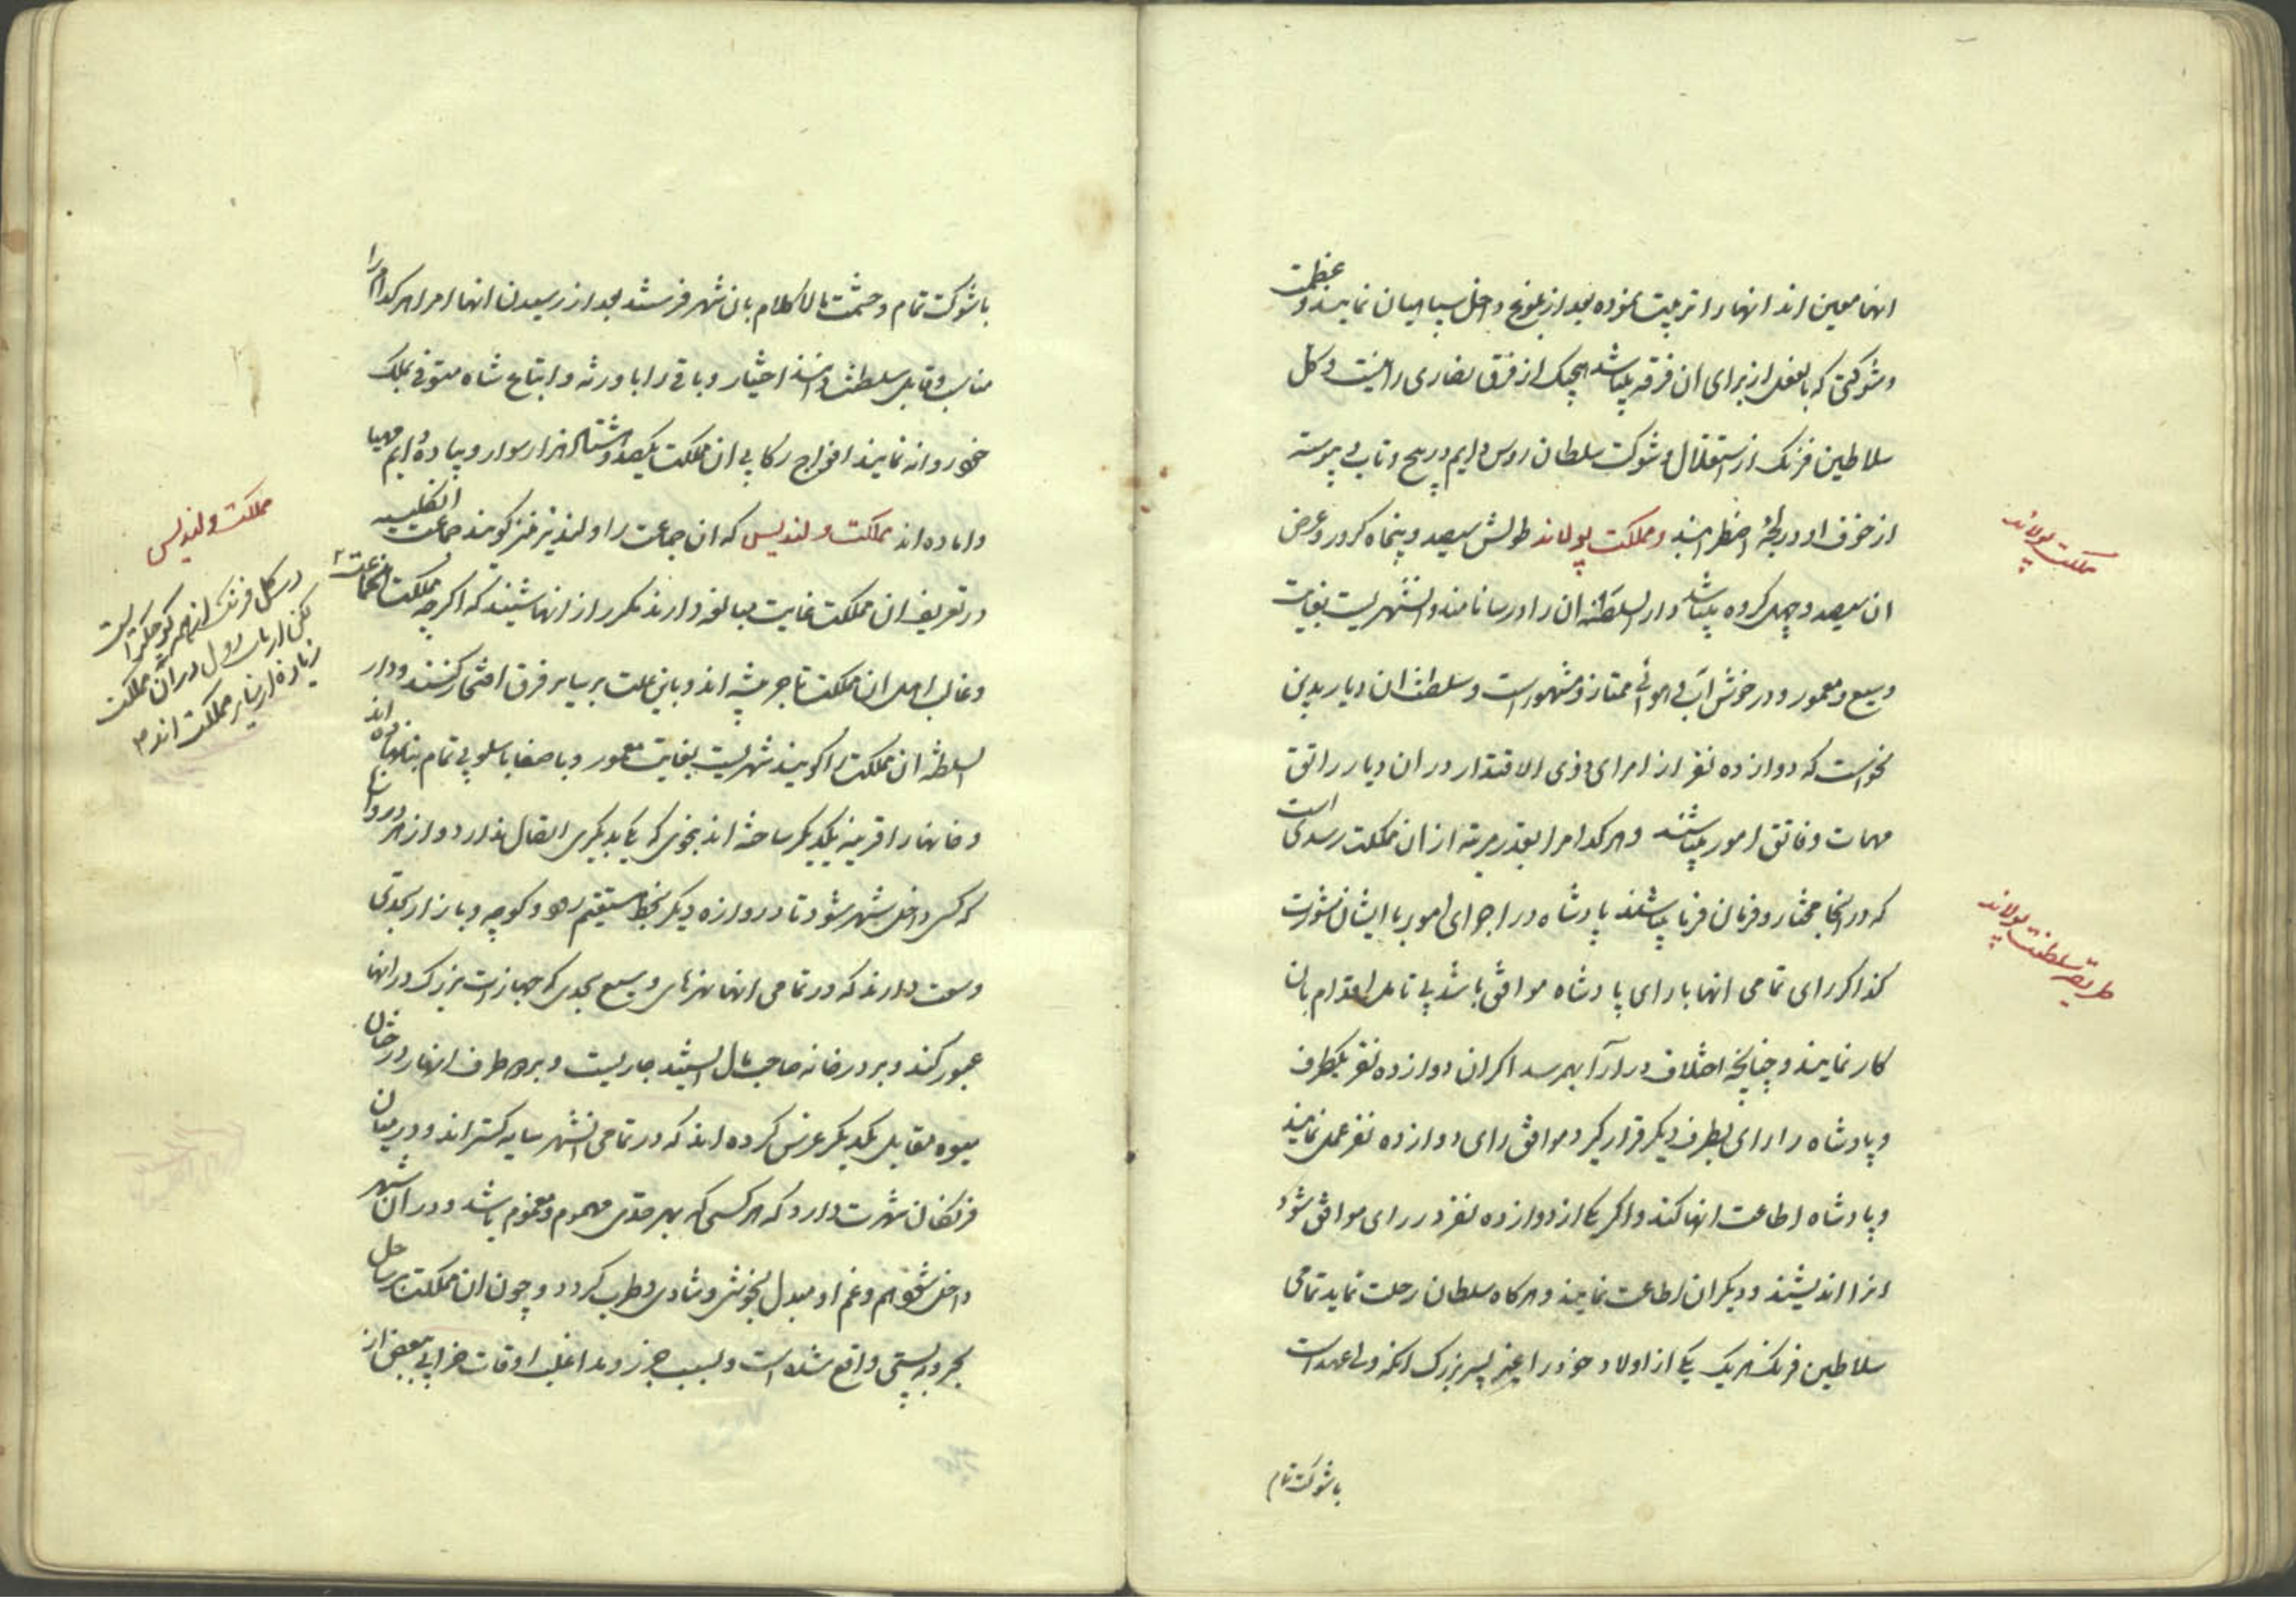 انها معین اند انها را تربیت نموده بعد از بلوغ داخل سپاهیان نمایند و عظمت
و شوکتی که بالفعل از برای ان فرقه میباشد هیچیک از فرق نصاری را نیست و کل
سلاطین فرنک از استقلال و شوکت سلطان روس دایم در پیچ و تاب و پیوسته
از خوف او در لجهٔ اضطرابند و مملکت پولاند طولش سیصد و پنجاه کرور و عرض
ان سیصد و چهل کروه میباشد دار السلطنه ان را ورسا نامند و انشهریست بغایت
وسیع و معمور و در خوش آب و هوائی ممتاز و مشهور است و سلطنت ان دیار بدین
نحو است که دوازده نفر از امرای ذوی الاقتدار در ان دیار راتق
مهمات و فاتق امور میباشند و هر کدام را بقدر مرتبه از ان مملکت رسدی است
که در انجا مختار و فرمان فرما میباشند پادشاه در اجرای امور با ایشان مشورت
کند اکر رای تمامی انها با رای پادشاه موافق باشد بی تامل اقدام بان
کار نمایند و چنانچه اختلاف در آرا بهم رسد اکر ان دوازده نفر یکطرف
و پادشاه را رای بطرف دیکر قرار کیرد موافق رای دوازده نفر عمل نمایند
و پادشاه اطاعت انها کند و اکر یکی از دوازده نفر در رای موافق شود
انرا اندیشند و دیکران اطاعت نمایند و هر کاه سلطان رحلت نماید تمامی
سلاطین فرنک هر یک یکی از اولاد خود را غیر پسر بزرک انکه ولی عهد است
با شوکت تمام
مملکت پولاند
طریقه سلطنت پولاند
با شوکت تمام و حشمت مالا کلام بان شهر فرستند بعد از رسیدن انها امرا هر کدام را
مناسب و قابل سلطنت دانند اختیار و باقی را با ورثه و اتباع شاه متوفی بملک
خود روانه نمایند افواج رکابی ان مملکت یکصد و هشتاد هزار سوار و پیاده دایم مهیا
و اماده اند مملکت ولندیس که ان جماعت را ولندیز نیز کویند جماعت انکلیسیه
در تعریف ان مملکت غایت مبالغه دارند مکرر از انها شنیده که اکرچه مملکت انجماعت
و غالب اهل ان مملکت تاجر پیشه اند و باین علت بر سایر فرق افتخار کنند و دار
السلطنه ان مملکت را کویند شهریست بغایت معمور و با صفا باسلوبی تمام بنا نهاده اند
و خانها را قرینه یکدیکر ساخته اند بنحوی که یکی بدیکری اتصال ندارد و از هر دروازه
که کسی داخل شهر شود تا دروازه دیکر بخط مستقیم رود و کوچه و بازار بحدی
وسعت دارند که در تمامی انها نهرهای وسیع بحدی که جهازات بزرک در انها
عبور کنند و بر در خانه صاحب مال ایستند جاریست و بر هر طرف انهار درختان
میوه مقابل یکدیکر غرس کرده اند که در تمامی انشهر سایه کستراند و در میان
فرنکان شهرت دارد که هر کسی که بهر حدی مهموم و مغموم باشد و در ان شهر
داخل شود هم و غم او مبدل بخوشی و شادی و طرب کردد و چون ان مملکت بر ساحل
بحر و به پستی واقع شده است و بسبب جزر و مد اغلب اوقات خرابی ببعضی از
مملکت ولندیس
در کل فرنک از همه کوچکتر است
لکن ارباب دول در ان مملکت
زیاده از سایر مملکت اند